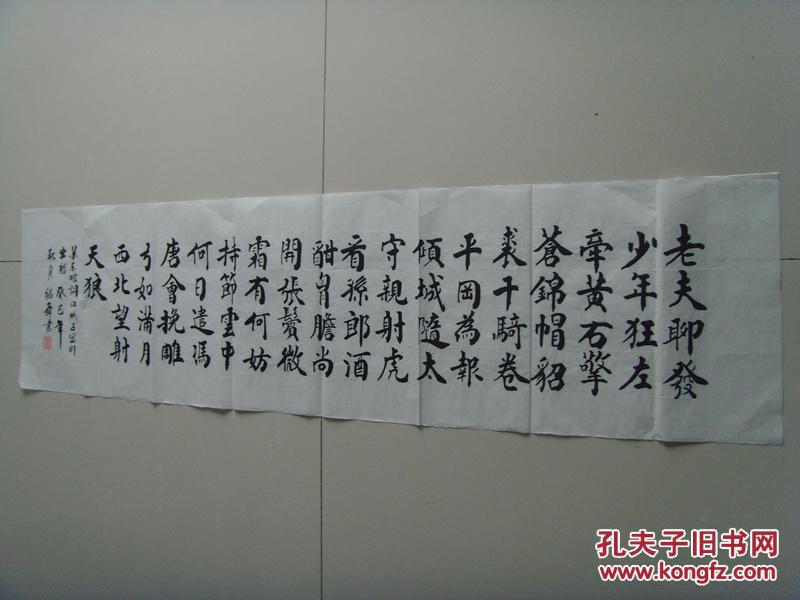 老夫聊發
少年狂左
牽黃右擎
蒼錦帽貂
裘千騎卷
平岡為報
傾城隨太
守親射虎
看孫郎酒
酣胷膽尚
開張鬢微
霜有何妨
持節雲中
何日遣馮
唐會挽雕
弓如滿月
西北望射
天狼
東坡詞江城子密州
出獵癸巳年
秋月 書
孔夫子旧书网
www.kongfz.com